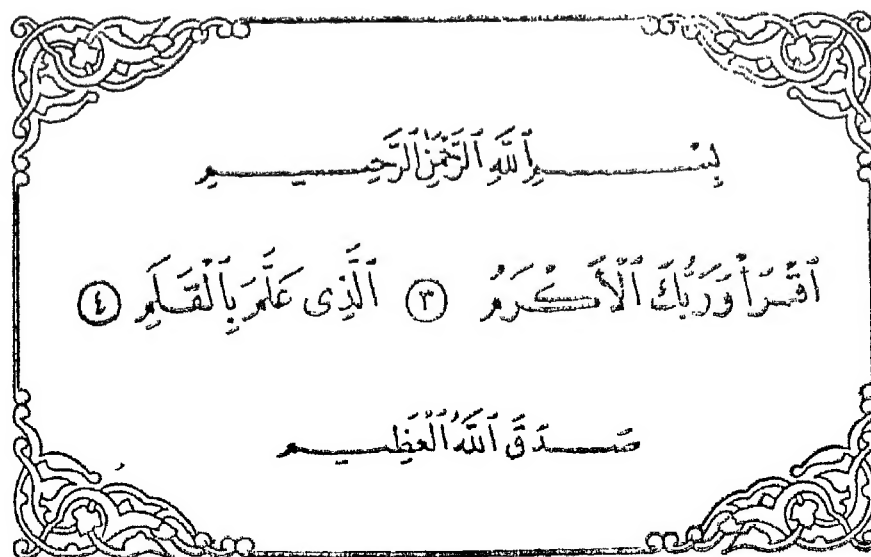 بِسْمِ ٱللَّهِ ٱلرَّحْمَٰنِ ٱلرَّحِيمِ
ٱقْرَأْ وَرَبُّكَ ٱلْأَكْرَمُ ٣ ٱلَّذِى عَلَّمَ بِٱلْقَلَمِ ٤
صَدَقَ ٱللَّهُ ٱلْعَظِيمِ